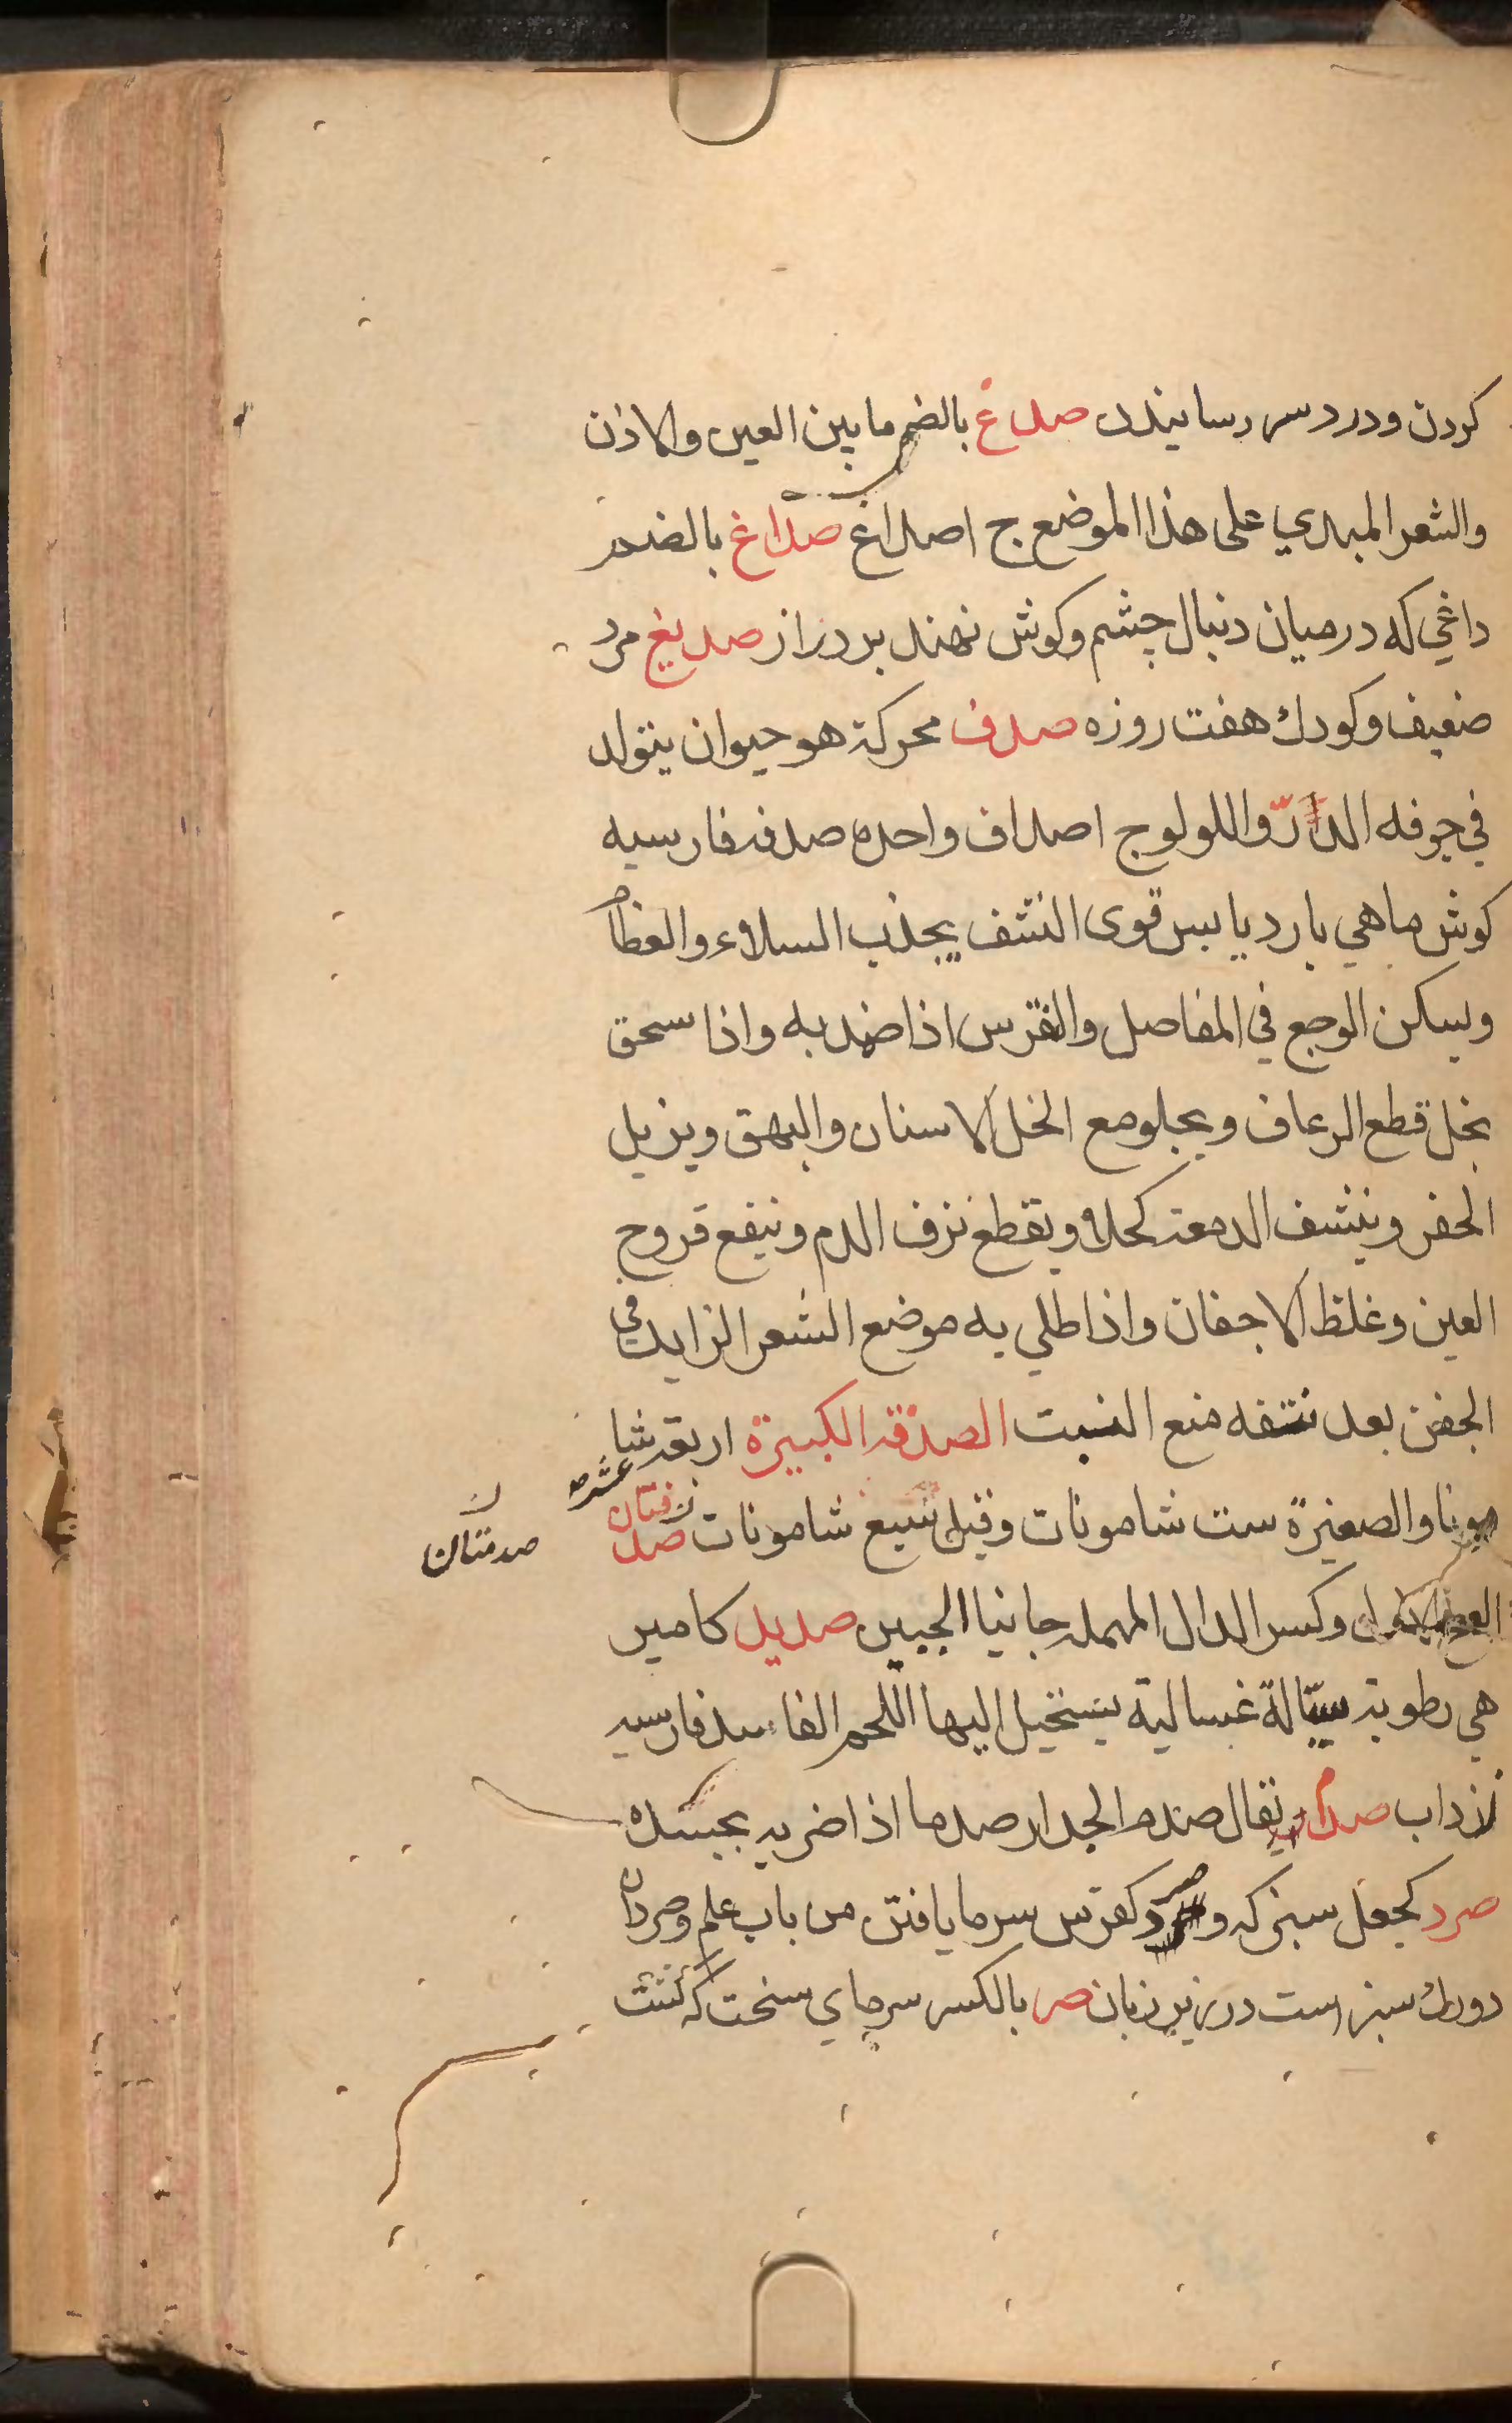 كردن ودرد سر رسانيدن صدغ بالضم ما بين العين والاذن
والشعر المبدي على هذا الموضع ج اصداغ صداغ بالضم
داغي كه در ميان دنبال چشم وكوش نهند بر دراز صديغ مرد
ضعيف وكودك هفت روزه صدف محركة هو حيوان يتولد
في جوفه الدر واللولو ج اصداف واحده صدفه فارسيه
كوش ماهي بارد يابس قوى النشف يجذب السلاء والعظام
ويسكن الوجع في المفاصل والنقرس اذا ضمد به واذا سحق
بخل قطع الرعاف ويجلو مع الخل الاسنان والبهق ويزيل
الحفر وينشف الدمعة كحلا ويقطع نزف الدم وينفع قروح
العين وغلظ الاجفان واذا طلي به موضع الشعر الزايد في
الجفن بعد نتفه منع النبت الصدفه الكبيرة اربعة عشره شا
مونا والصغيرة ست شامونات وقيل سبع شامونات صد
صدمتان
وكسر الدال المهمله جانبا الجبين صديد كامير
هي رطوبة سيالة غسالية يستحيل اليها اللحم الفاسد فارسيه
زرداب صدم يقال صدم الجدار صدما اذا ضربه بجسده
صرد كجعل سبزكه و صرد كفرس سرما يافتن من باب علم وصردان
دورك سبز است در زير زبان صر بالكسر سرماي سخت كه كشت